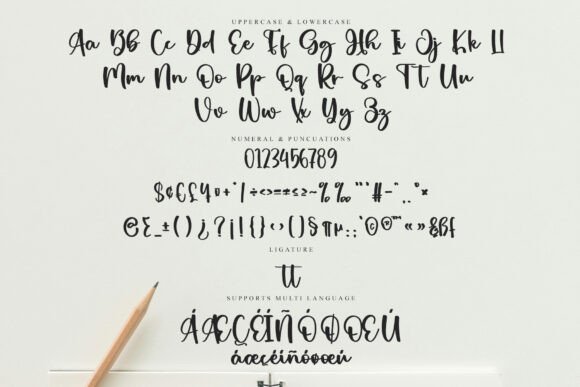 UPPERCASE & LOWERCASE
Aa Bb Cc Dd Ee Ff Gg Hh Ii Jj Kk Ll
Mm Nn Oo Pp Qq Rr Ss Tt Uu
Vv Ww Xx Yy Zz
NUMERAL & PUNCUATIONS
0123456789
$¢€£¥¤+*|÷<>=±≤≥~%‰"'#-
@&_±()¿?¡!{}‹›()§¶µ.:;'©®™«»§ßƒ
LIGATURE
tt
SUPPORTS MULTI LANGUAGE
ÁÆÇÉÍÑÓØŒÚ
áæçéíñóøœú